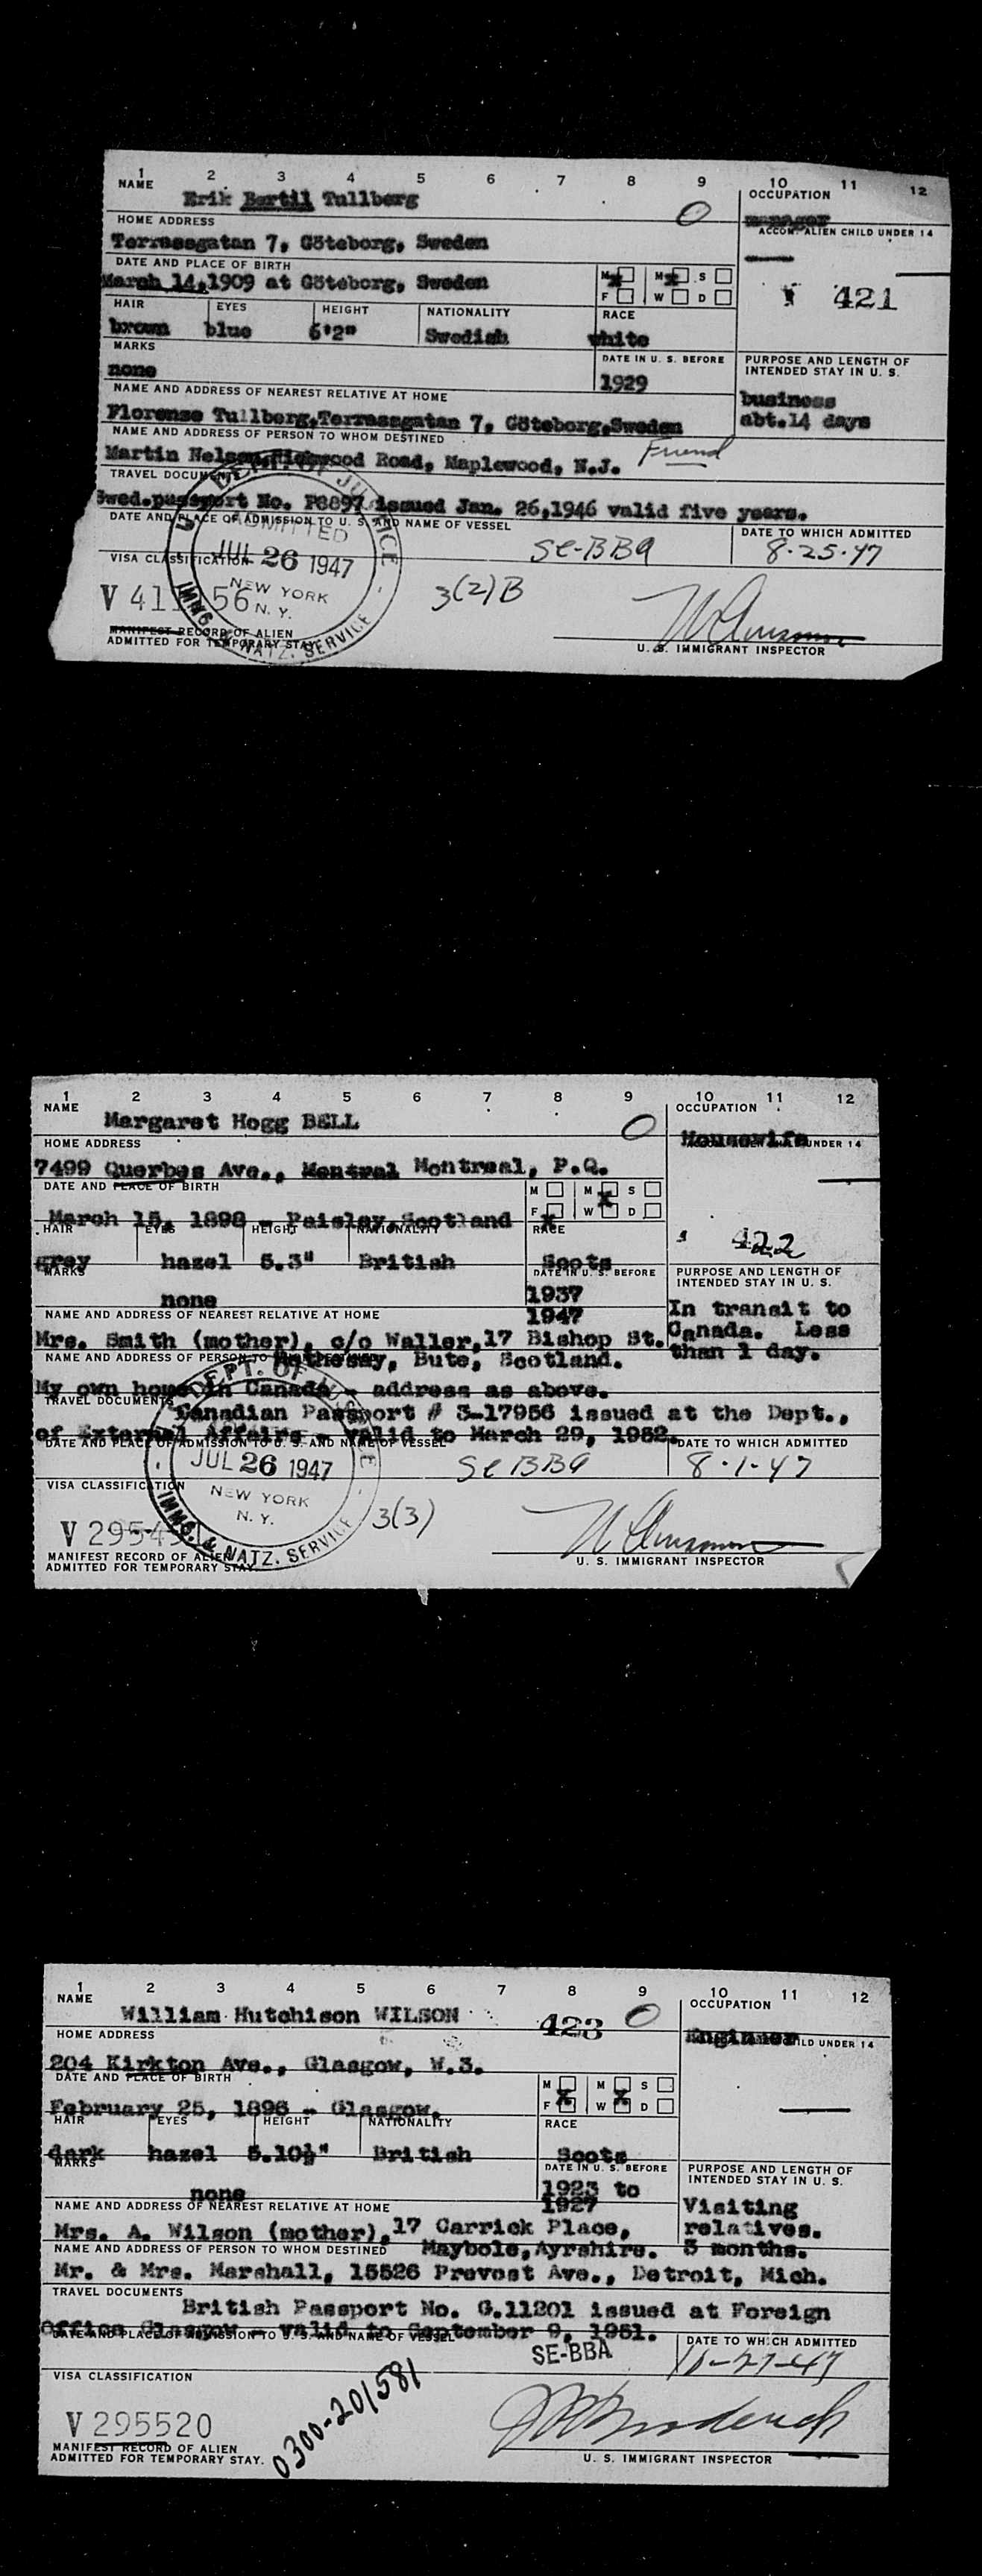 1 2 3 4 5 6 7 8 9 10 11 12
NAME OCCUPATION
Erik Bertil Tullberg O manager
HOME ADDRESS ACCOM. ALIEN CHILD UNDER 14
Terrassgatan 7, Göteborg, Sweden
DATE AND PLACE OF BIRTH
M X M X S
March 14,1909 at Göteborg, Sweden
F W D
421
HAIR EYES HEIGHT NATIONALITY RACE
brown blue 6'2" Swedish white
MARKS DATE IN U. S. BEFORE PURPOSE AND LENGTH OF INTENDED STAY IN U. S.
none 1929
NAME AND ADDRESS OF NEAREST RELATIVE AT HOME business
Florense Tullberg,Terrassgatan 7, Göteborg,Sweden abt.14 days
NAME AND ADDRESS OF PERSON TO WHOM DESTINED
Martin Nelson, Road, Maplewood, N.J. Friend
TRAVEL DOCUMENTS
Swed.passport No. P8897 issued Jan. 26,1946 valid five years.
DATE AND PLACE OF ADMISSION TO U. S. AND NAME OF VESSEL DATE TO WHICH ADMITTED
SE-BBA 8-25-47
VISA CLASSIFICATION
DEPT. OF JUSTICE
ADMITTED
JUL 26 1947
NEW YORK
N. Y.
IMMG. & NATZ. SERVICE
V 41 56 3(2)B
MANIFEST RECORD OF ALIEN
ADMITTED FOR TEMPORARY STAY
U. S. IMMIGRANT INSPECTOR
1 2 3 4 5 6 7 8 9 10 11 12
NAME OCCUPATION
Margaret Hogg BELL O Housewife
HOME ADDRESS UNDER 14
7499 Querbes Ave., Montral Montreal, P.Q.
DATE AND PLACE OF BIRTH
M M X S
F X W D
March 15, 1898 - Paisley,Scotland
HAIR EYES HEIGHT NATIONALITY RACE
422
grey hazel 5.3" British Scots
MARKS DATE IN U. S. BEFORE PURPOSE AND LENGTH OF INTENDED STAY IN U. S.
none 1937
NAME AND ADDRESS OF NEAREST RELATIVE AT HOME 1947
In transit to
Mrs. Smith (mother), c/o Waller,17 Bishop St. Canada. Less
NAME AND ADDRESS OF PERSON TO Rothesay, Bute, Scotland. than 1 day.
My own house in Canada - address as above.
TRAVEL DOCUMENTS Canadian Passport # 3-17956 issued at the Dept.,
of External Affairs - valid to March 29, 1952.
DATE AND PLACE OF ADMISSION TO U. S. AND NAME OF VESSEL DATE TO WHICH ADMITTED
SE BBA 8-1-47
VISA CLASSIFICATION
DEPT. OF
JUL 26 1947
NEW YORK
N. Y.
IMMG. & NATZ. SERVICE
V 2954 3(3)
MANIFEST RECORD OF ALIEN
ADMITTED FOR TEMPORARY STAY.
U. S. IMMIGRANT INSPECTOR
1 2 3 4 5 6 7 8 9 10 11 12
NAME OCCUPATION
William Hutchison WILSON 423 O Enginner
HOME ADDRESS CHILD UNDER 14
204 Kirkton Ave., Glasgow, W.3.
DATE AND PLACE OF BIRTH
M X M X S
F W D
February 25, 1896 - Glasgow.
HAIR EYES HEIGHT NATIONALITY RACE
dark hazel 5.10½" British Scots
MARKS DATE IN U. S. BEFORE PURPOSE AND LENGTH OF INTENDED STAY IN U. S.
none 1923 to
NAME AND ADDRESS OF NEAREST RELATIVE AT HOME 1927 Visiting
Mrs. A. Wilson (mother),17 Carrick Place, relatives.
NAME AND ADDRESS OF PERSON TO WHOM DESTINED Maybole,Ayrshire. 3 months.
Mr. & Mrs. Marshall, 15526 Prevost Ave., Detroit, Mich.
TRAVEL DOCUMENTS
British Passport No. G.11201 issued at Foreign
Office Glasgow - valid to September 9, 1951.
DATE AND PLACE OF ADMISSION TO U. S. AND NAME OF VESSEL
SE-BBA DATE TO WHICH ADMITTED
10-27-47
VISA CLASSIFICATION
V 295520 0300-201581
MANIFEST RECORD OF ALIEN
ADMITTED FOR TEMPORARY STAY.
U. S. IMMIGRANT INSPECTOR